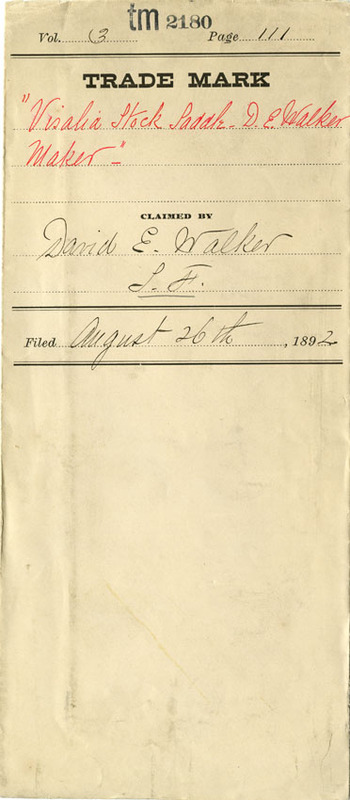 tm 2180
Vol. 3 Page 111
TRADE MARK
"Visalia Stock Saddle - D. E. Walker
Maker -"
CLAIMED BY
David E. Walker
S. F.
Filed August 26th, 1892